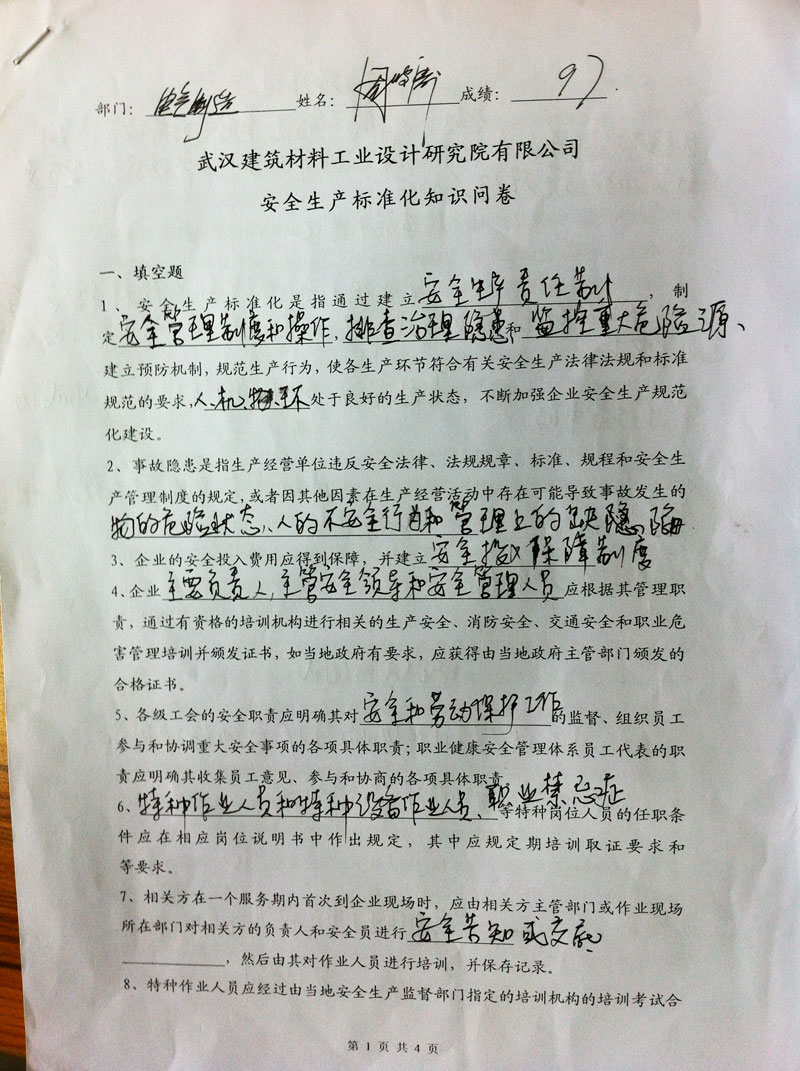 部门： 姓名： 周 成绩： 97
武汉建筑材料工业设计研究院有限公司
安全生产标准化知识问卷
一、填空题
1、安全生产标准化是指通过建立安全生产责任制，制
定安全管理制度和操作，排查治理隐患和监控重大危险源、
建立预防机制，规范生产行为，使各生产环节符合有关安全生产法律法规和标准
规范的要求，人、机、物、环处于良好的生产状态，不断加强企业安全生产规范
化建设。
2、事故隐患是指生产经营单位违反安全法律、法规规章、标准、规程和安全生
产管理制度的规定，或者因其他因素在生产经营活动中存在可能导致事故发生的
物的危险状态、人的不安全行为和管理上的缺陷
3、企业的安全投入费用应得到保障，并建立安全投入保障制度
4、企业主要负责人，主管安全领导和安全管理人员应根据其管理职
责，通过有资格的培训机构进行相关的生产安全、消防安全、交通安全和职业危
害管理培训并颁发证书，如当地政府有要求，应获得由当地政府主管部门颁发的
合格证书。
5、各级工会的安全职责应明确其对安全和劳动保护工作的监督、组织员工
参与和协调重大安全事项的各项具体职责；职业健康安全管理体系员工代表的职
责应明确其收集员工意见、参与和协商的各项具体职责
6、特种作业人员和特种设备作业人员、职业禁忌症等特种岗位人员的任职条
件应在相应岗位说明书中作出规定，其中应规定期培训取证要求和
等要求。
7、相关方在一个服务期内首次到企业现场时，应由相关方主管部门或作业现场
所在部门对相关方的负责人和安全员进行安全告知或交底
，然后由其对作业人员进行培训，并保存记录。
8、特种作业人员应经过由当地安全生产监督部门指定的培训机构的培训考试合
第 1 页 共 4 页